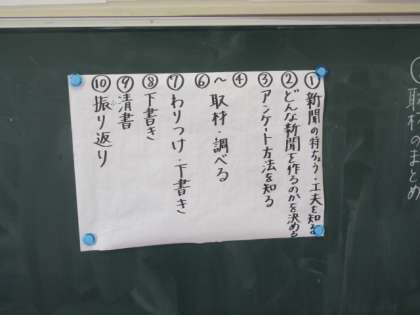 ①新聞の特ちょう・工夫を知る
②どんな新聞を作るのかを決める
③アンケート方法を知る
④
〜取材・調べる
⑥
⑦わりつけ・下書き
⑧下書き
⑨清書
⑩振り返り
取材のまとめ